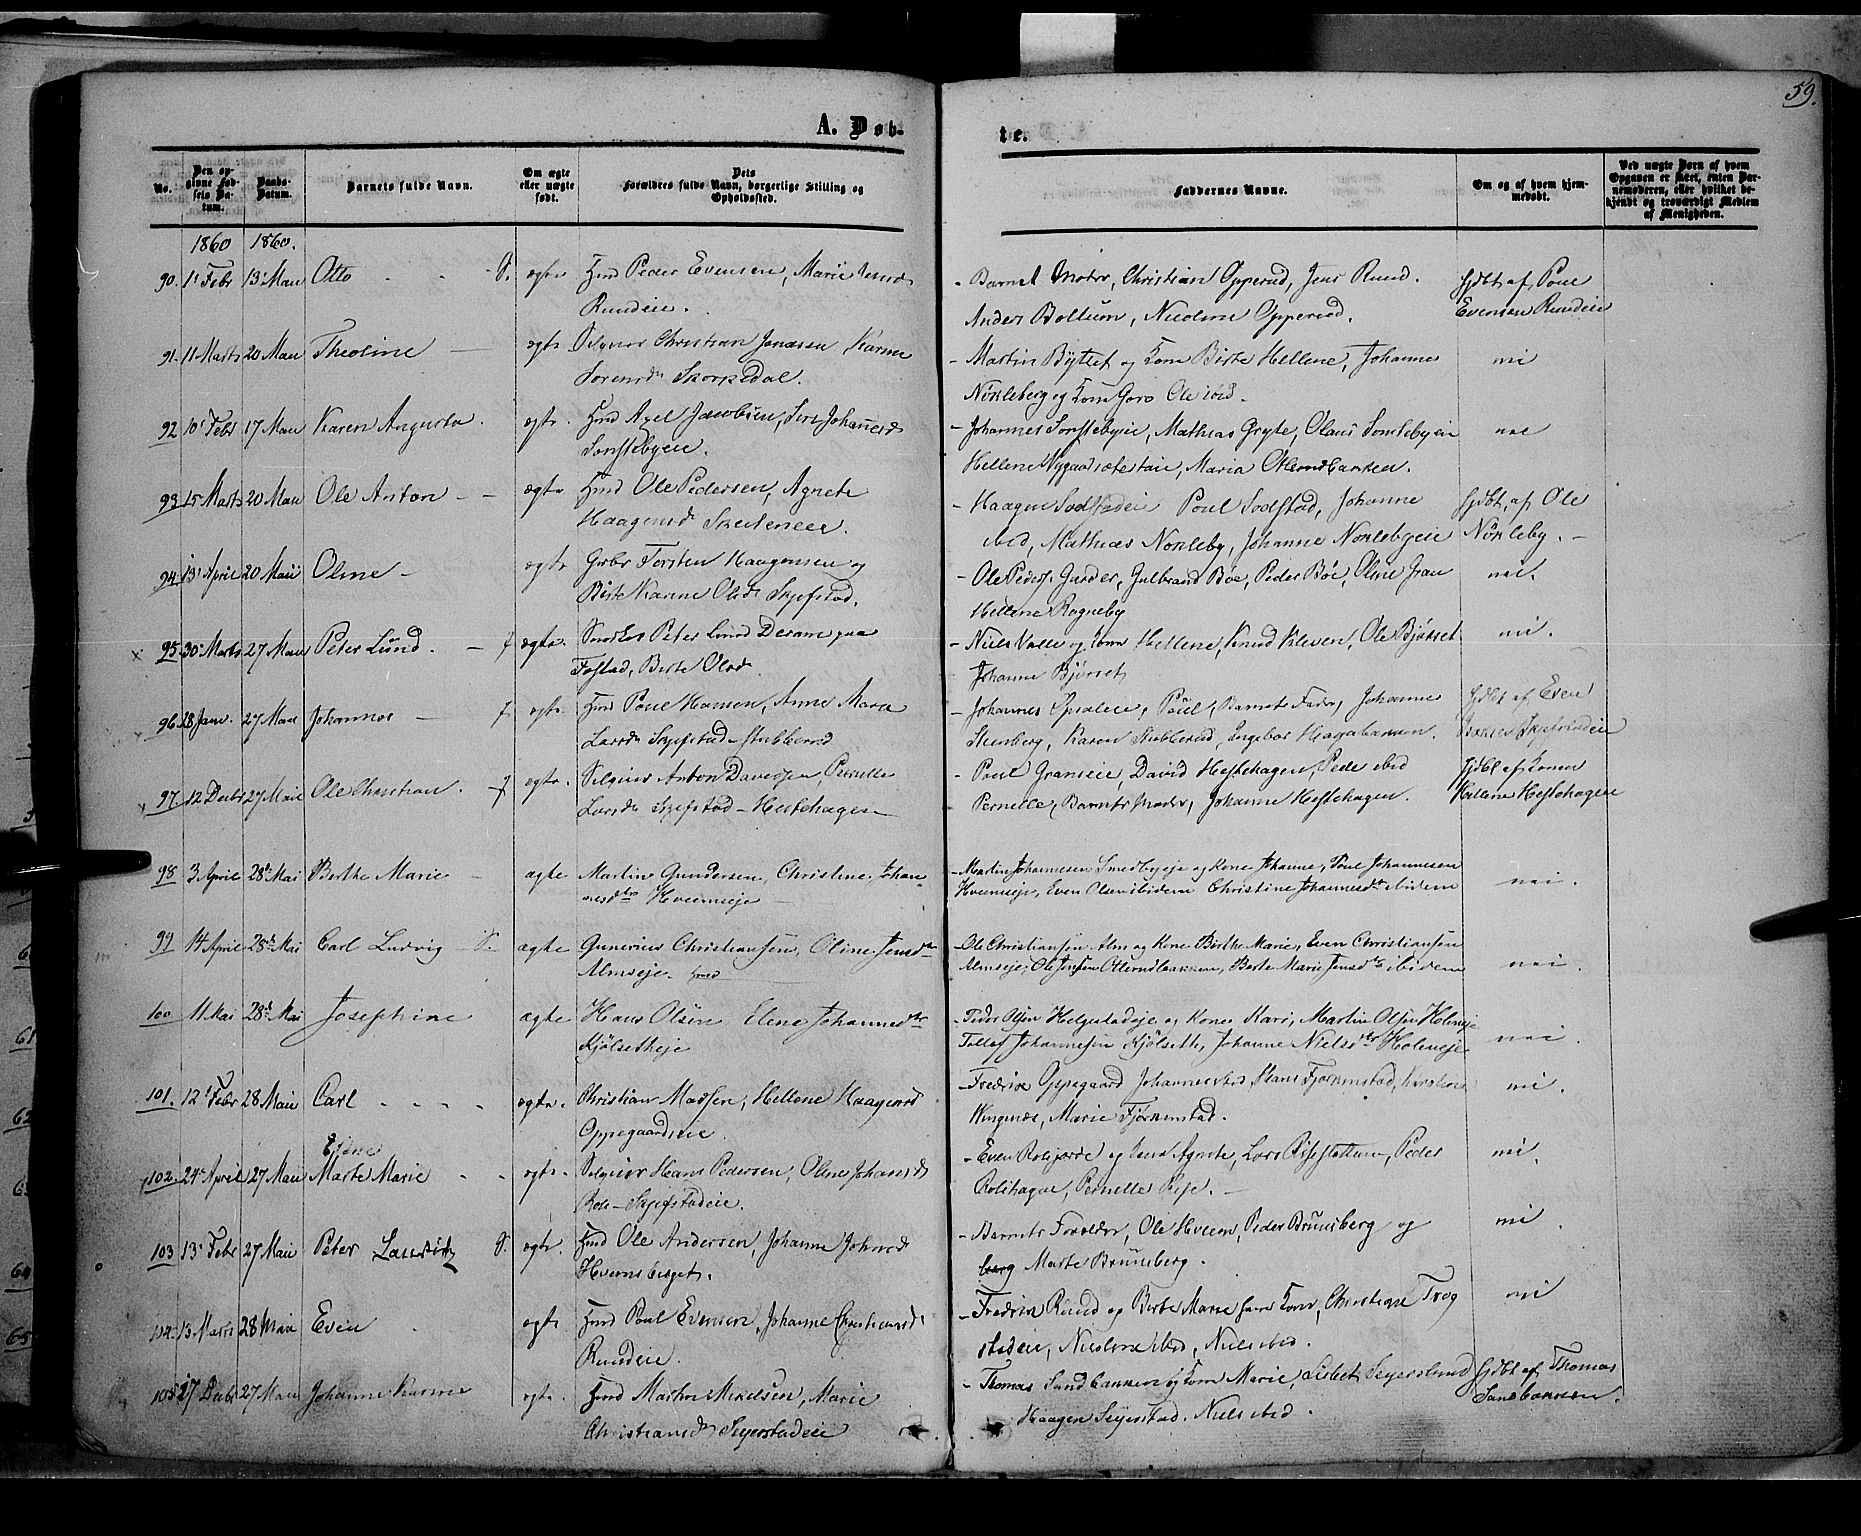 59.
A. Døb-
te.
No.
Den opgivne Fødsels Datum.
Daabs-Datum.
Barnets fulde Navn.
Om ægte eller uægte født.
Dets Forældres fulde Navn, borgerlige Stilling og Opholdssted.
Faddernes Navne.
Om og af hvem hjemmedøbt.
Ved uægte Børn af hvem Opgaven er skeet, enten Barnemoderen, eller hvilket bekjendt og troværdigt Medlem af Menigheden.
1860 1860.
90. 1' Febr 13' Mai Otto S. ægte Hmd Peder Evensen, Marie
Rundeie.
- Barnets Moder, Christian Opperud, Jens Rund.
Anders Boltum, Nicoline Opperud.
Hjdbt af Poul
Evensen Rundeie
91. 11 Marts 20 Mai Theoline ægte Selveier Christian Jonassen Karine
Sørensdr Skorpedal.
- Martin Byttet og Kone Birte Hellene, Johanne
Nørleberg og Kone Goro Ole ibid.
nei
92 10' Febr 17 Mai Karen Augusta. ægte. Hmd Axel Jacobsen, Johannesd
- Johannes Mathias Gryte, Olaus
Hellene Maria Otterudbakken.
nei
93 15 Marts 20 Mai Ole Anton ægte Hmd Ole Pedersen, Agnete
Haagensdr
- Haagen Sodstadeie Poul Sodstad, Johanne
ibid, Mathias Nøkleby, Johanne Nøklebyeie
Hjdbt, af Ole
Nøkleby.
94 13' April 20 Mai Oline ægte Grbr Torsten Haagensen og
Birte Karine Olsdr Skjefstad.
- Ole Peders. Gurder, Gulbrand Bøe, Peder Bøe, Oline Gran
Hellene Rogneby
nei.
95. 30' Marts 27 Mai Peter Lund. f ægte. Snorker Peter Lund
Fostad, Birte Olsd.
- Niels Valle og Kone Hellene, Knud Kleven, Ole Bjørset
Johanne Bjørset
nei.
96. 28 Janv. 27 Mai Johannes f ægte. Hmd Poul Hansen, Anne Maria
Larsdr Skjefstad-Stubberud
- Johannes Poul, Barnets Fader, Johanne
Stenberg, Karen Stubberud, Ingebor Hagabakken.
Hjdbt af Even
97. 12 Decbr 27 Mai Ole Christian. f ægte. Selveier Anton Davidsen, Pernille
Larsdr Skjefstad-Hestehagen
- Poul Graneie, David Hestehagen, Peder ibid
Pernelle, Barnets Moder, Johanne Hestehagen.
Hjdbt af Konen
Hellene Hestehagen
98 3 April 28de Mai Berthe Marie ægte Martin Gundersen, Christine Johan-
nesdtr Hveemseje
- Martin Johannesen Smedbyeje og Kone Johanne, Poul Johannesen
Hveemseje, Even Olsen ibidem Christine Johannesdtr ibidem
nei.
99 14 April 28de Mai Carl Ludvig S. ægte Gunerius Christiansen, Oline Jensd-
Almseje. hmd
- Ole Christiansen Alm og Kone Birthe Marie, Even Christiansen
Almseje, Ole Jensen Otterudbakken, Berte Marie Jensdtr ibidem
nei.
100 11 Mai 28de Mai Josephine ægte Hans Olsen Elene Johannesdtr
Kjølsetheje
- Peder Olsen Helgestadeje og Kone Kari, Martin Olsen Holeneje
Tollef Johannesen Kjølseth, Johanne Nielsdtr Holeneje
nei.
101. 12' Febr 28 Mai Carl ægte. Christian Madsen, Hellene Haagensd
Oppegaardseie.
- Fredrik Oppegaard Johannes ibid Hans Fjørkenstad, Karoline
Wingenæs, Marie Fjørkenstad.
nei.
102. 24' April 27 Mai Marte Marie ægte. Selveier Hans Pedersen, Oline Johansd
Role-Skjefstadeie.
- Even Rolijorde og Kone Agnete, Lars Peder
Rolihagen, Pernelle
nei.
103 13' Febr 27 Mai Peter Lauritz S. ægte. Hmd Ole Andersen, Johanne Johnsd
Hvernsberget.
- Barnets Forældre, Ole Hveem, Peder Bruneberg og
berg Marte Bruneberg.
nei.
104. 13 Marts 28 Mai Even ægte Hmd Poul Evensen, Johanne Christiansd
Rundeie.
- Fredrik Rund og Birte Marie hans Kone, Christian Trog
stadeie, Nicoline ibid, Niels ibid.
nei
105 17 Decbr 27 Mai Johanne Karine ægte. Hmd Martin Mikelsen, Marie
Christiansdr Seyerstadeie
- Thomas Sandbakken og Kone Marie, Lisbet Seyerslund
Haagen Seyerstad. Niels ibid.
Hjdbt af Thomas
Sandbakken.